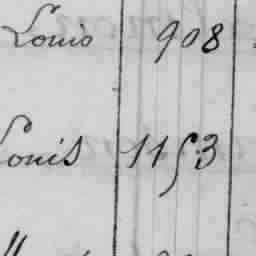 Louis 908
Louis 1153